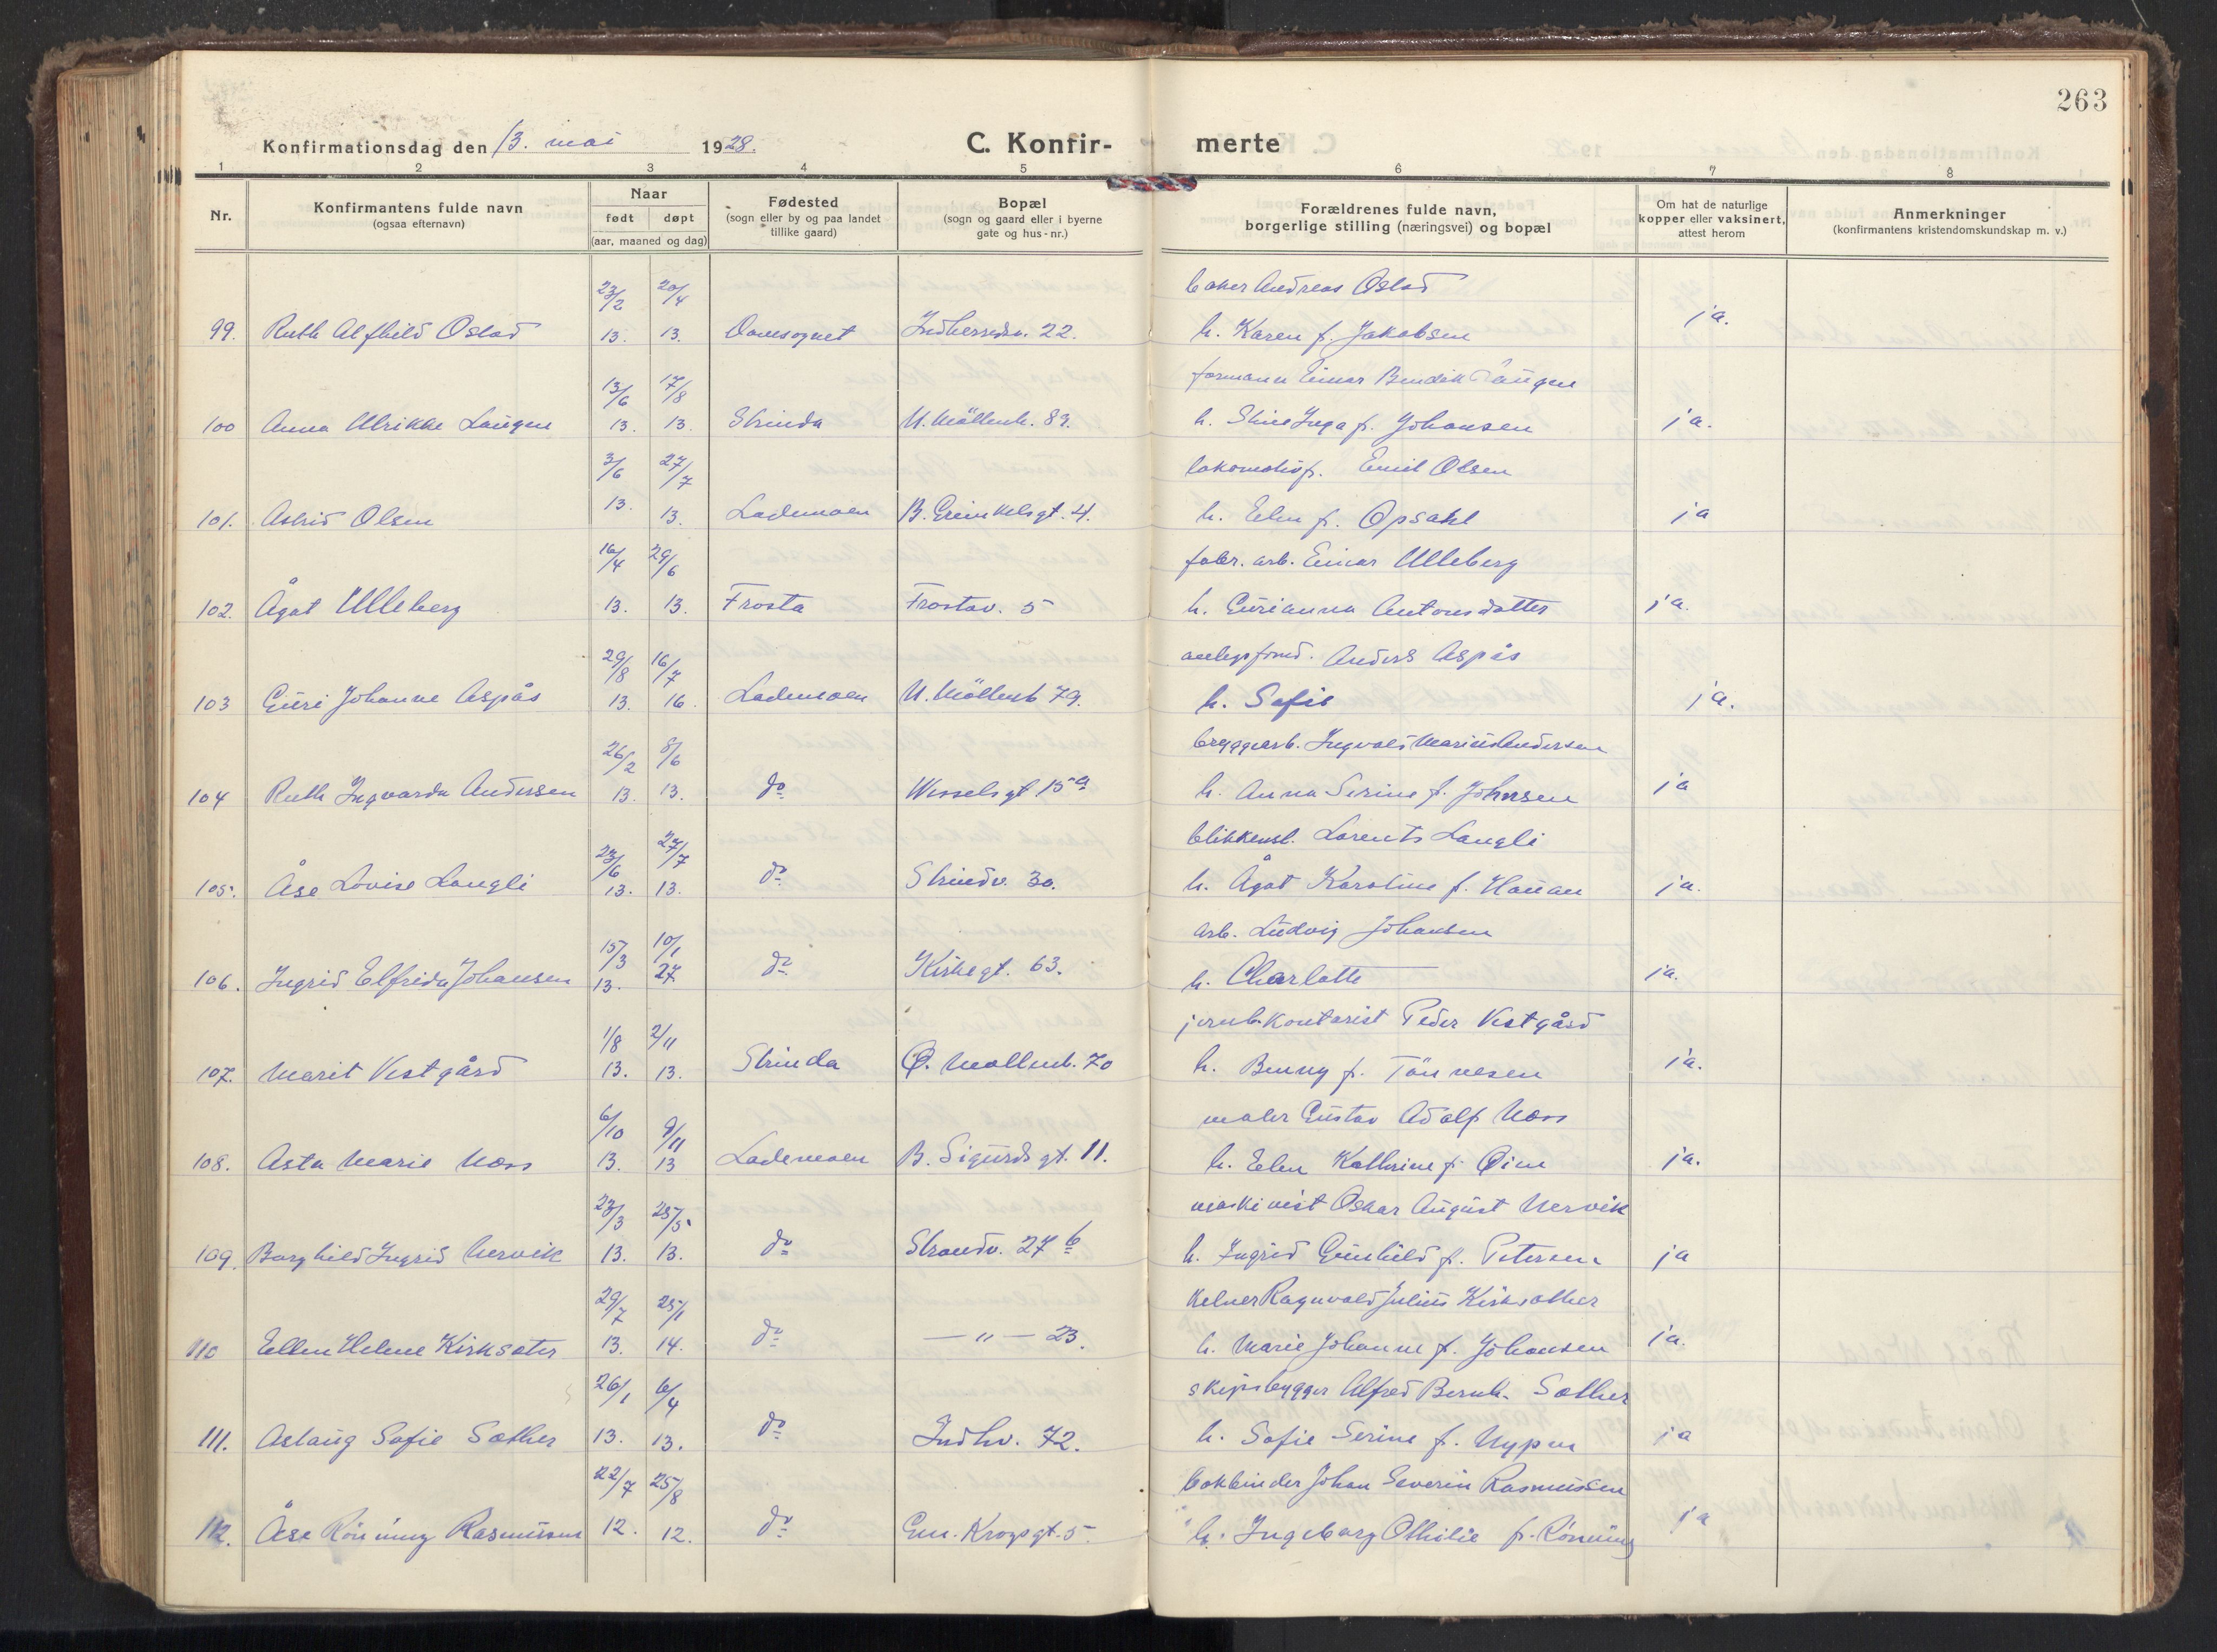 263
Konfirmationsdag den 13. mai 1928. C. Konfir- merte
1 2 3 4 5 6 7 8
Nr.
Konfirmantens fulde navn
(ogsaa efternavn)
Naar
født døpt
(aar, maaned og dag)
Fødested
(sogn eller by og paa landet
tillike gaard)
Bopæl
(sogn og gaard eller i byerne
gate og hus-nr.)
Forældrenes fulde navn,
borgerlige stilling (næringsvei) og bopæl
Om hat de naturlige
kopper eller vaksinert,
attest herom
Anmerkninger
(konfirmantens kristendomskundskap m. v.)
23/2 20/4 baker Andreas Oslad
99. Ruth Alfhild Oslad 13. 13. Domsognet Indherredsv. 22. h. Karen f. Jakobsen ja.
13/6 17/8 formann Einar Bendik Laugen
100 Anna Ulrikke Laugen 13. 13. Strinda N. Möllenb. 89. h. Stine Inga f. Johansen ja.
3/6 27/7 lokomotivf. Emil Olsen
101. Astrid Olsen 13. 13. Lademoen B. Grinkelsgt. 4. h. Elen f. Opsahl ja
16/4 29/6 fabr. arb. Einar Ulleberg
102. Ågot Ulleberg 13. 13. Frosta Frostav. 5 h. Gurianna Antonsdatter ja.
29/8 16/7 Anders Aspås
103 Guri Johanne Aspås 13. 16. Lademoen N. Möllenb 79. h. Sofie ja.
26/2 8/6 bryggearb. Ingvald Marius Andersen
104 Ruth Ingvarda Andersen 13. 13. do Wesselsgt 15a h. Anna Serine f. Johnsen ja
23/6 27/7 blikkensl. Lorents Langli
105. Åse Lovise Langli 13. 13. do Strindv. 30. h. Ågot Karoline f. Hauan ja.
15/3 10/1 arb. Ludvig Johansen
106. Ingrid Elfrida Johansen 13. 27. do Kirkegt. 63. h. Charlotte — ja.
1/8 2/11 jernb.kontorist Peder Vestgård
107. Marit Vestgård 13. 13. Strinda Ø. Möllenb. 70 h. Benny f. Tönnesen ja.
6/10 9/11 maler Gustav Adolf Moss
108. Asta Marie Moss 13. 13 Lademoen B. Sigurdsgt. 11. h. Elen Kathrine f. Øien ja.
23/3 25/5 maskinist Oskar August Nervik
109. Borghild Ingrid Nervik 13. 13. do Strandv. 27 b h. Ingrid Gunhild f. Petersen ja
29/7 25/1 kelner Ragnvald Julius Kirksæther
110 Ellen Helene Kirksæter 13. 14. do — " — 23. h. Marie Johanne f. Johansen ja.
26/1 6/4 skipsbygger Alfred Bernh. Sæther
111. Aslaug Sofie Sæther 13. 13. do Indhv. 72. h. Sofie Serine f. Nypen ja
22/7 25/8 bokbinder Johan Severin Rasmussen
112. Åse Rönning Rasmussen 12. 12. do Em. Krogsgt. 5 h. Ingeborg Othilie f. Rönning ja